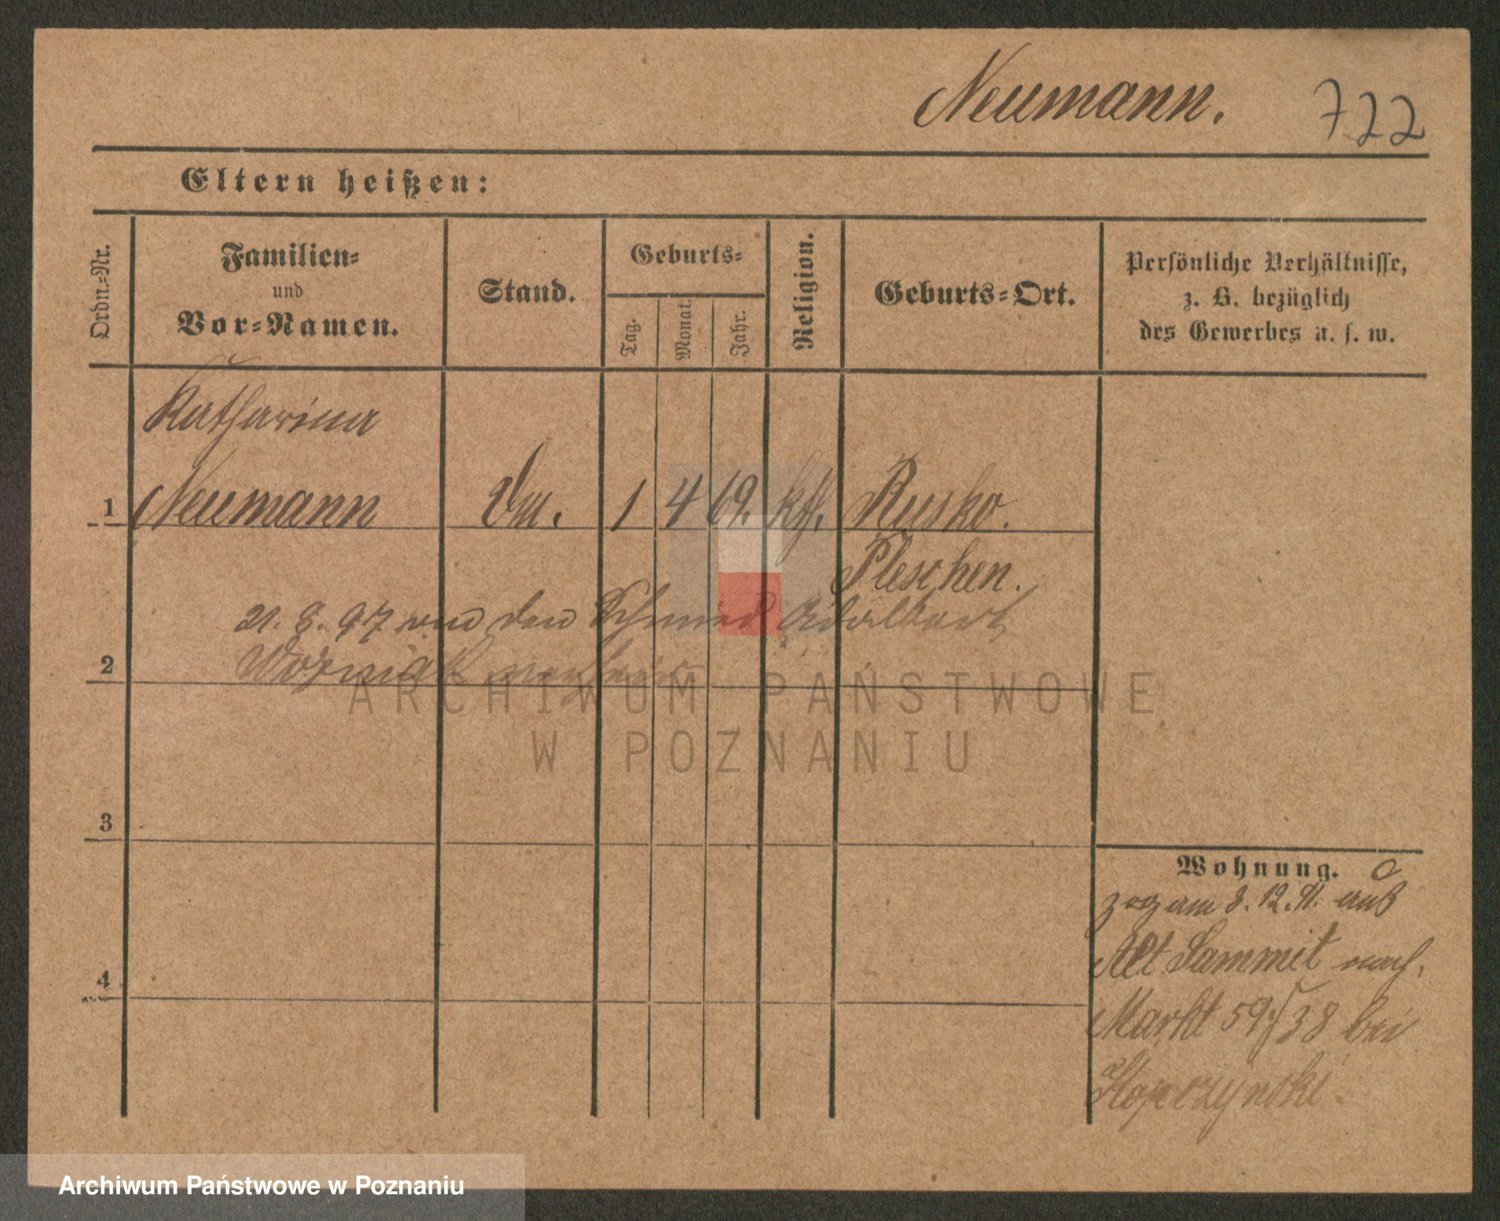 Neumann. 722
Eltern heißen:
Ordn.-Nr.
Familien-
und
Vor-Namen.
Stand.
Geburts-
Tag.
Monat.
Jahr.
Religion.
Geburts-Ort.
Persönliche Verhältnisse,
z. B. bezüglich
des Gewerbes u. s. w.
Katharina
1 Neumann 1 4 69. kth. Rusko.
Pleschen.
21. 8. 97 an den Schmied Adalbert
2 Wozniak
ARCHIWUM PAŃSTWOWE
W POZNANIU
3
Wohnung.
zog am 3. 12. 91. aus
Alt Sammit nach
4
Markt 59/38 bei
Kopczynski.
Archiwum Państwowe w Poznaniu